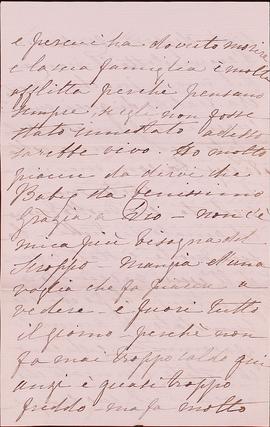 e per cui ha dovuto morire
e la sua famiglia è molto
afflitta perchè pensano
sempre, se egli non fosse
stato innestato adesso
sarebbe vivo. Ho molto
piacere da dirvi che
Baby sta benissimo
grazia a Dio – non c'è
mica più bisogna del
Siroppo mangia d'una
voglia che fa piacere a
vedere – è fuori tutto
il giorno perchè non
fa mai troppo caldo qui
anzi è quasi troppo
freddo – ma fa molto